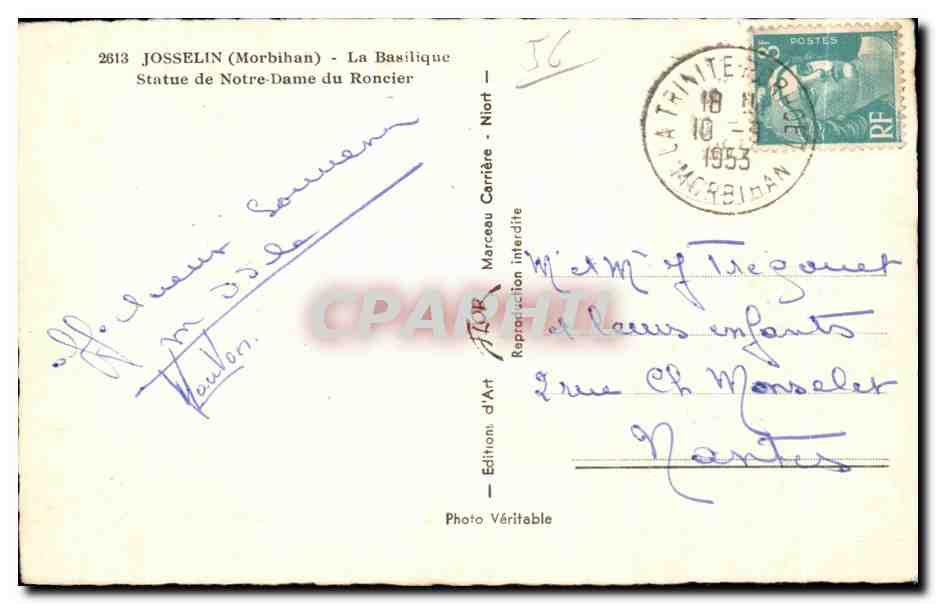 2613 JOSSELIN (Morbihan) - La Basilique
Statue de Notre-Dame du Roncier
56
Affectueux Souvenir
— Editions d'Art JTLOR Marceau Carrière - Niort —
Reproduction interdite
Photo Véritable
POSTES
RF
LA TRINITE
18
10 -
1953
MORBIHAN
Mr et Me J Trégouet
et leurs enfants
2 rue Ch Monselet
Nantes
CPARPHIL